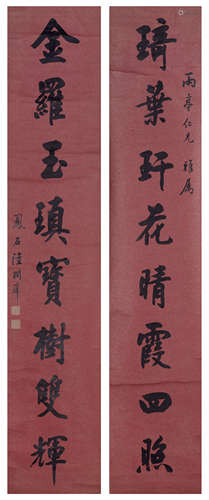 琦葉玕花晴霞四照
雨亭仁兄雅屬
金羅玉瑱寶樹雙輝
鳳石陸潤庠